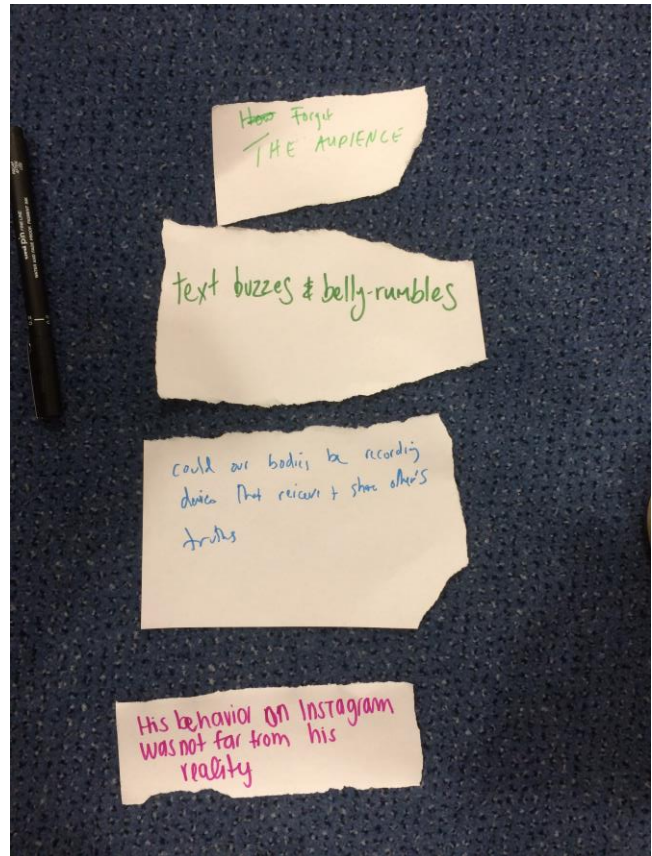 Forget
THE AUDIENCE
text buzzes & belly-rumbles
could our bodies be recording
devices that reiceve + share other's
truths
His behavior on Instagram
was not far from his
reality
uni pin